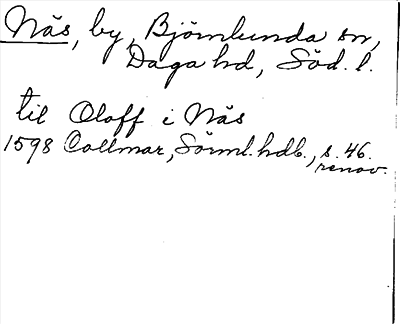 Näs, by, Björnlunda sn,
Daga hd, Söd. l.
til Oloff i Näs
1598 Collmar, Sörml. hdl., s. 46.
renov.